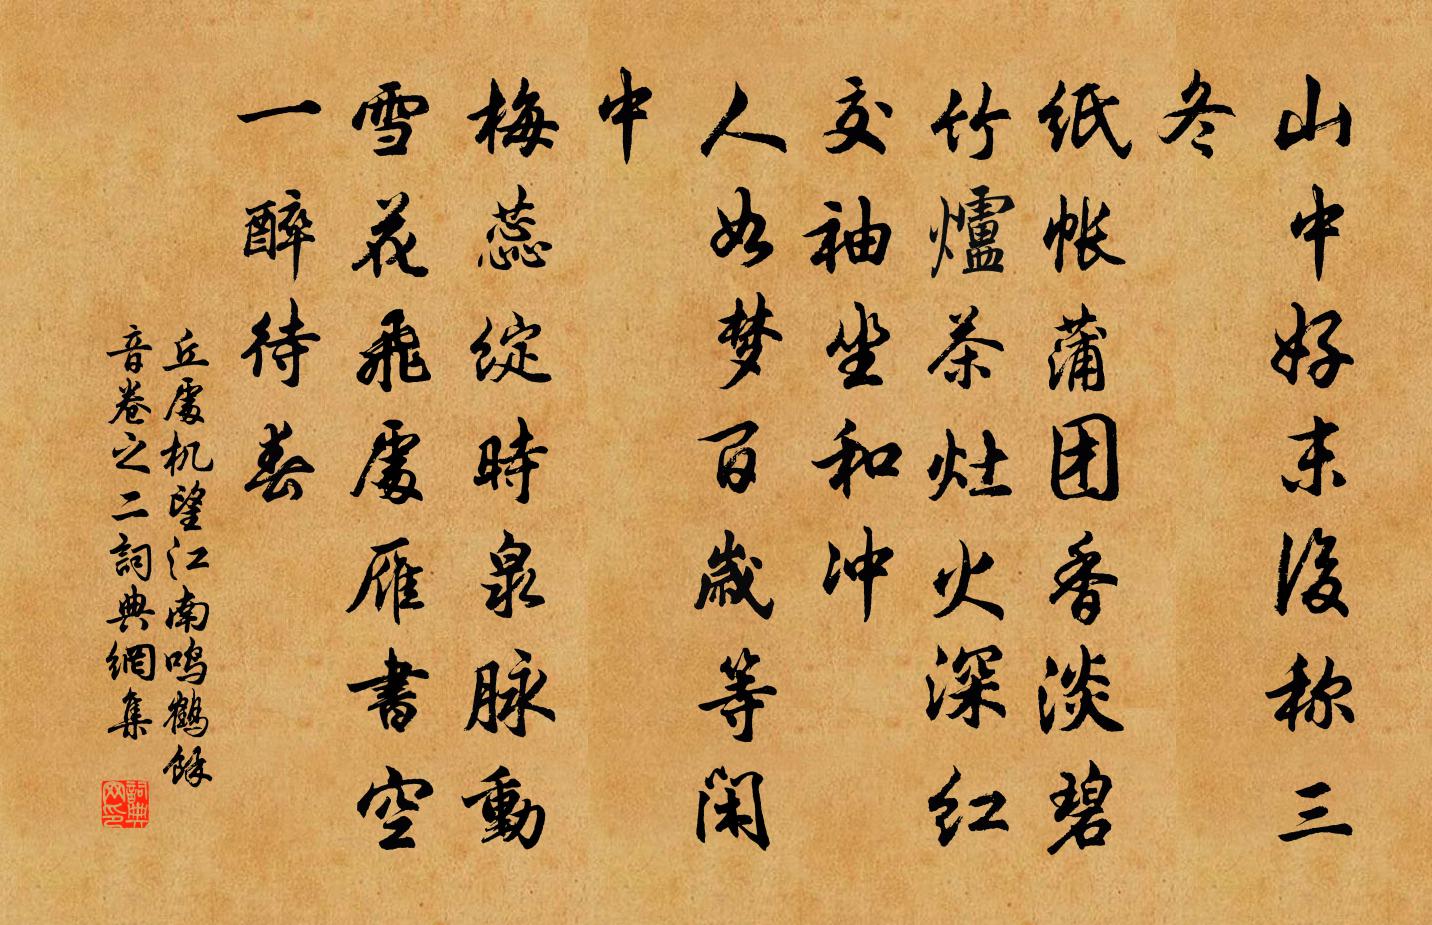 山中好末後称三
冬
紙帐蒲团香淡碧
竹爐茶灶火深红
交袖坐和冲
人如梦百歲等闲
中
梅蕊綻時泉脉動
雪花飛處雁書空
一醉待春
丘處机望江南鸣鹤餘
音卷之二詞典網集
詞典网印